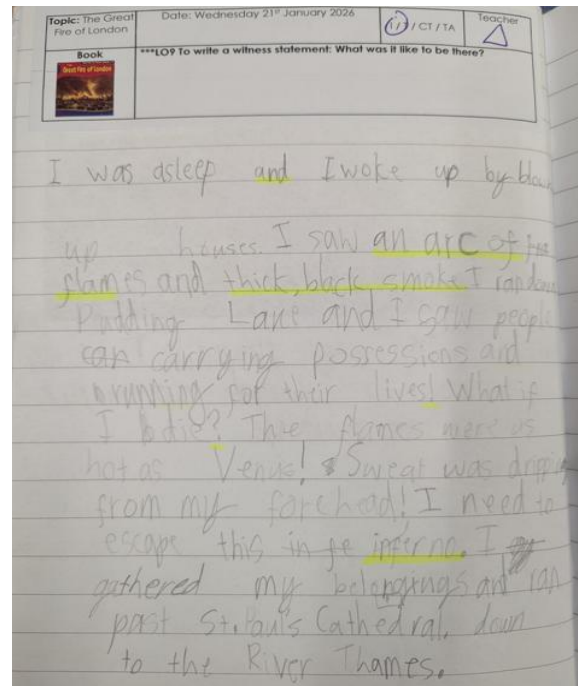 Topic: The Great Fire of London
Date: Wednesday 21st January 2026
(I)/CT/TA
Teacher
Book
Great Fire of London
***LO9 To write a witness statement: What was it like to be there?
I was asleep and I woke up by blown
up houses. I saw an arc of
flames and thick, black smoke. I ran down
Pudding Lane and I saw people
carrying possessions and
running for their lives! What if
I die? The flames were as
hot as Venus! Sweat was dripping
from my forehead! I need to
escape this inferno. I
gathered my belongings and ran
past St. Paul's Cathedral, down
to the River Thames.